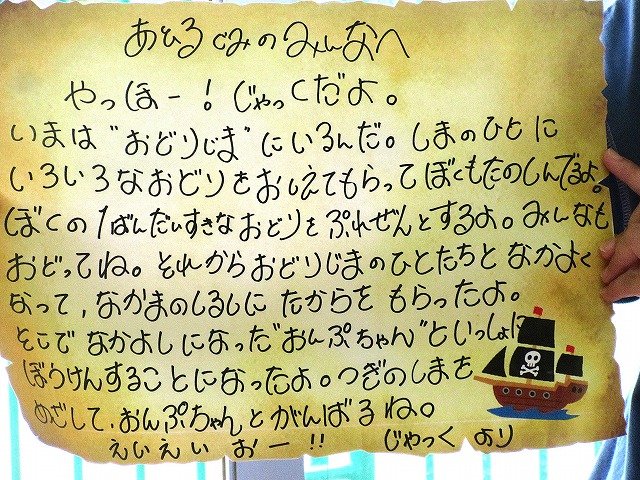 あひるぐみのみんなへ
やっほー！じゃっくだよ。
いまは"おどりじま"にいるんだ。しまのひとに
いろいろなおどりをおしえてもらってぼくもたのしんでるよ。
ぼくの1ばんだいすきなおどりをぷれぜんとするよ。みんなも
おどってね。それからおどりじまのひとたちとなかよく
なって、なかまのしるしにたからをもらったよ。
そこでなかよしになった"おんぷちゃん"といっしょに
ぼうけんすることになったよ。つぎのしまを
めざして、おんぷちゃんとがんばるね。
えいえいおー!! じゃっくより